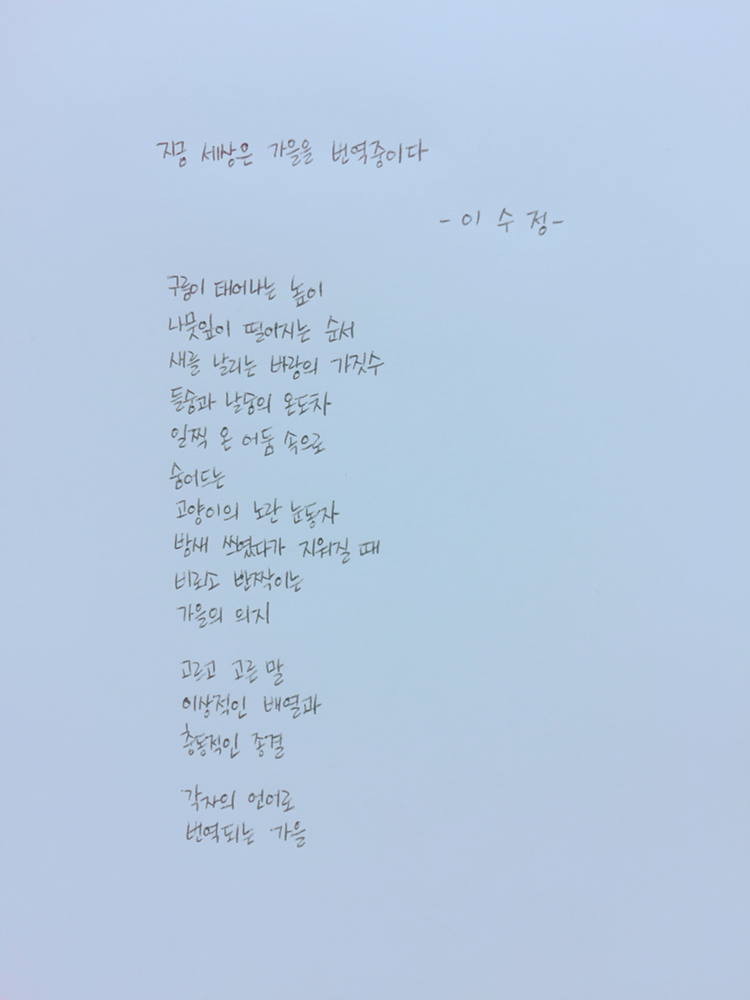 지금 세상은 가을을 번역중이다
- 이 수 정 -
구름이 태어나는 높이
나뭇잎이 떨어지는 순서
새를 날리는 바람의 가짓수
들숨과 날숨의 온도차
일찍 온 어둠 속으로
숨어드는
고양이의 노란 눈동자
밤새 쓰였다가 지워질 때
비로소 반짝이는
가을의 의지
고르고 고른 말
이상적인 배열과
충동적인 종결
각자의 언어로
번역되는 가을